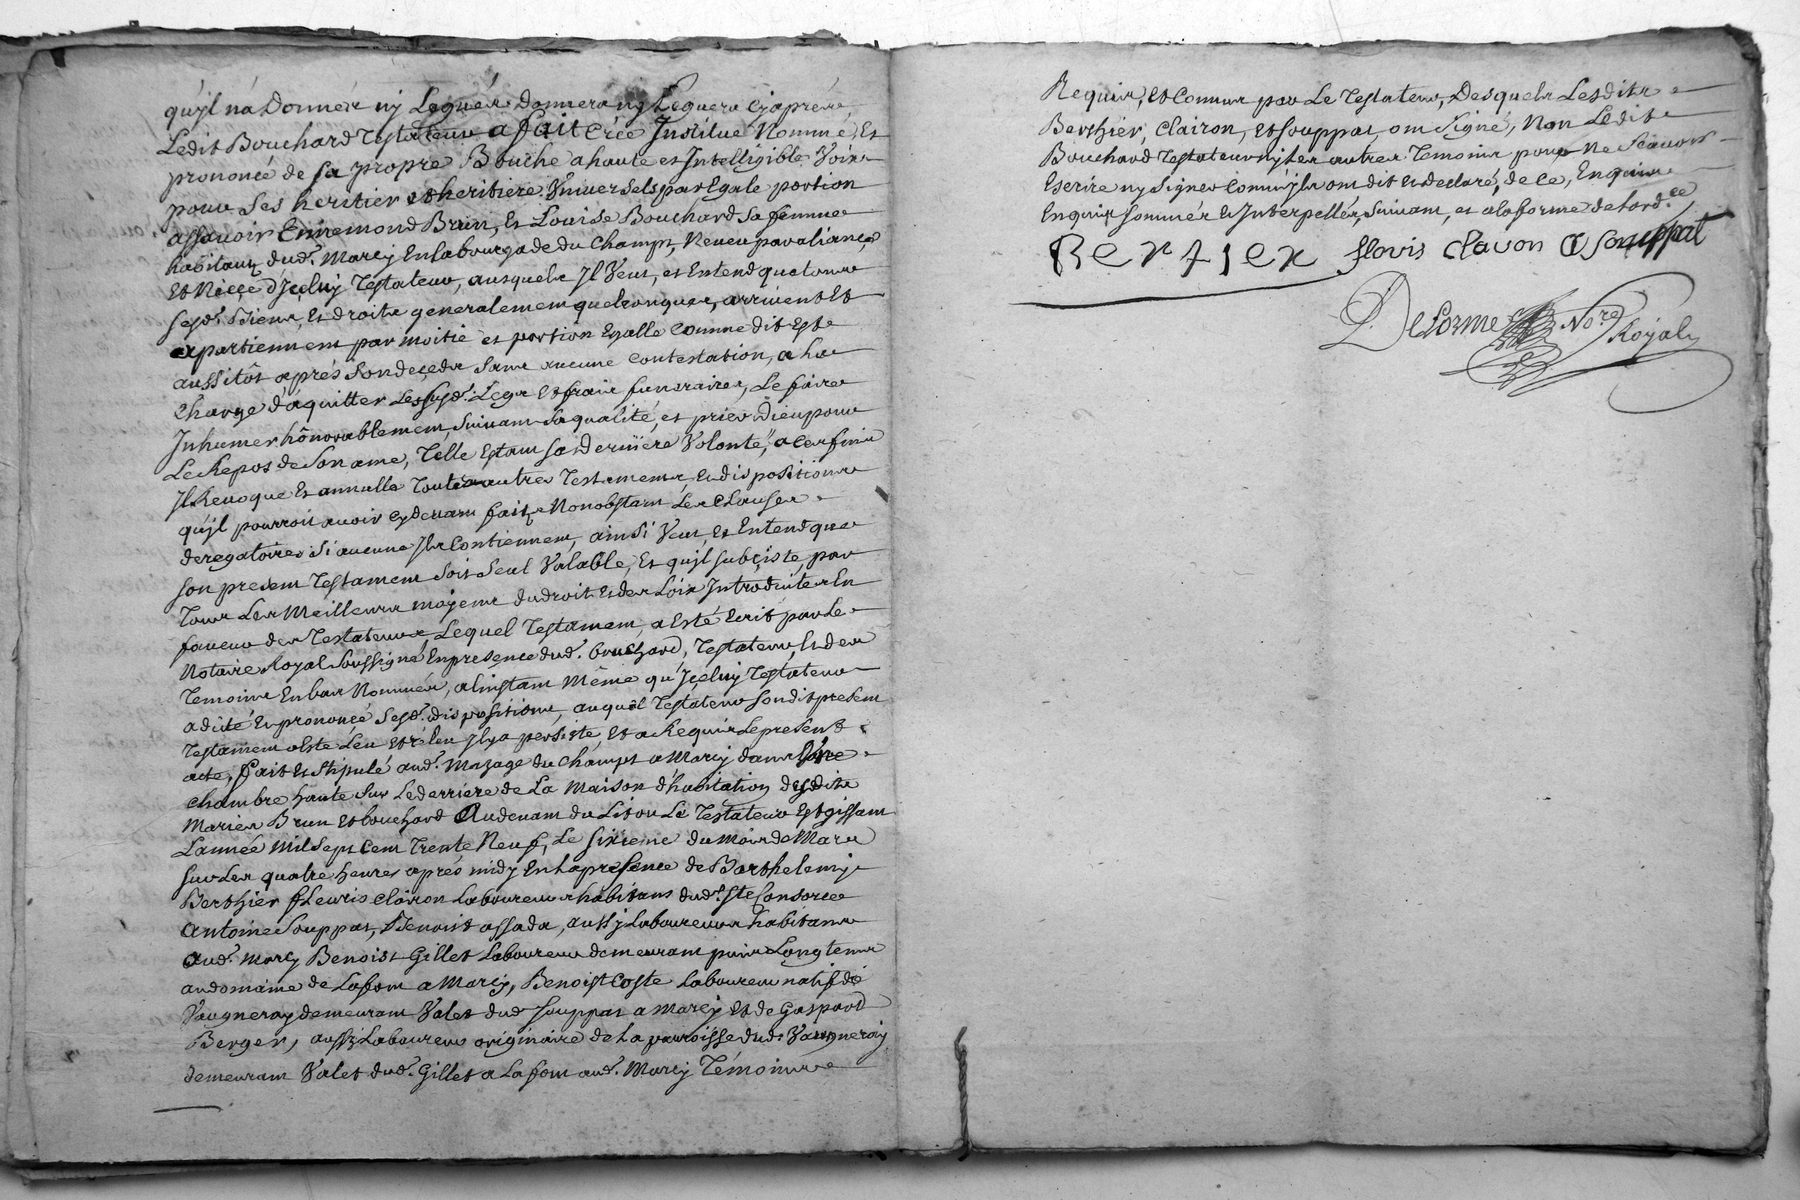 qu'jl na Donnér ny Leguér donnera ny Léguera cy aprés
Ledit Bouchard Testateur a fait Créé Institué Nommé, Et
prononcé de sa propre Bouche a haute et Intelligible Voix
pour Ses heritier et heritiere Vniversels par Egale portion
assavoir Ennemond Brun, Et Louise Bouchard Sa femme
habitans dud. Marcy En la bourgade du Champt, Neveu par aliance
Et Niéce d'Jceluy Testateur, ausquels Jl Veut, et Entend que tous
Sesd. Biens, Et droits generalement quelconques, arrivent Et
apartiennent par moitié et portion Egalle Comme dit Est
aussitôt aprés Son decéds Sans aucune Contestation, a la
charge d'aquitter Les susd. Legs Et frais funeraires, Le faire
Inhumer hônorablement, Suivant Sa qualité, et prier Dieu pour
Le Repos de Son ame, Telle Estant Sa derniére Volonté, a ces fins
Jl Revoque Et annulle Toutes autres Testaments, Et dispositions
qu'jl pourroit avoir cydevant faits, Nonobstant Les Clauses
deregatoires Si aucune Jls Contiennent, ainsi Veut, Et Entend que
Son present Testament Soit Seul Valable, Et qu'jl subçiste, par
Tous Les Meilleurs moyens du droit Et des Loix Introduites En
faveur des Testateurs, Lequel Testament, a Esté Ecrit par Le
Notaire Royal Soussigné En presence dud. Bouchard, Testateur, Et des
Temoins En bas Nommés, a l'instant Même qu'Jceluy Testateur
a dité Et prononcé Sesd. dispositions, auquel Testateur Son dit present
Testament a Esté Leu Et réleu Jl y a persisté, Et a Requis Le present
acte, fait Et Stipulé aud. Mazage du Champt a Marcy dans Vne
Chambre haute Sur Le derriere de La Maison d'habitation desdits
Mariés Brun Et bouchard Au devant du Lit ou Le Testateur Est gissant
L'année Mil Sept Cent Trente Neuf, Le Sixieme du Mois de Mars
Sur Les quatre heures aprés midy En La presence de Barthelemy
Berthier fleuris Clairon Laboureurs habitans dud. Ste Consorce
Antoine Souppat, Benoist assada, aussy Laboureurs habitans
aud. Marcy Benoist Gillet Laboureur demeurant puis Longtems
au domaine de Lafont a Marcy, Benoist Coste Laboureur natif de
Vaugneray demeurant Valet dud. Souppat a Marcy Et de Gaspard
Berger, aussy Laboureur originaire de La parroisse dud. Vaugneray
demeurant Valet dud. Gillet a Lafont aud. Marcy Témoins
Requis, Et Connus par Le Testateur, Desquels Lesdits
Berthier, Clairon, Et Souppat, ont Signé, Non Ledit
Bouchard Testateur ny Les autres Temoins pour Ne Scavoir
Escrire ny Signer Comm'jls ont dit Et declaré, de Ce, Enquis
Enquis Sommés Et Interpellés, Suivant, et a la forme de Lord.ce
Bertier flovis clavon A Souppat
Delorme No.re Royal